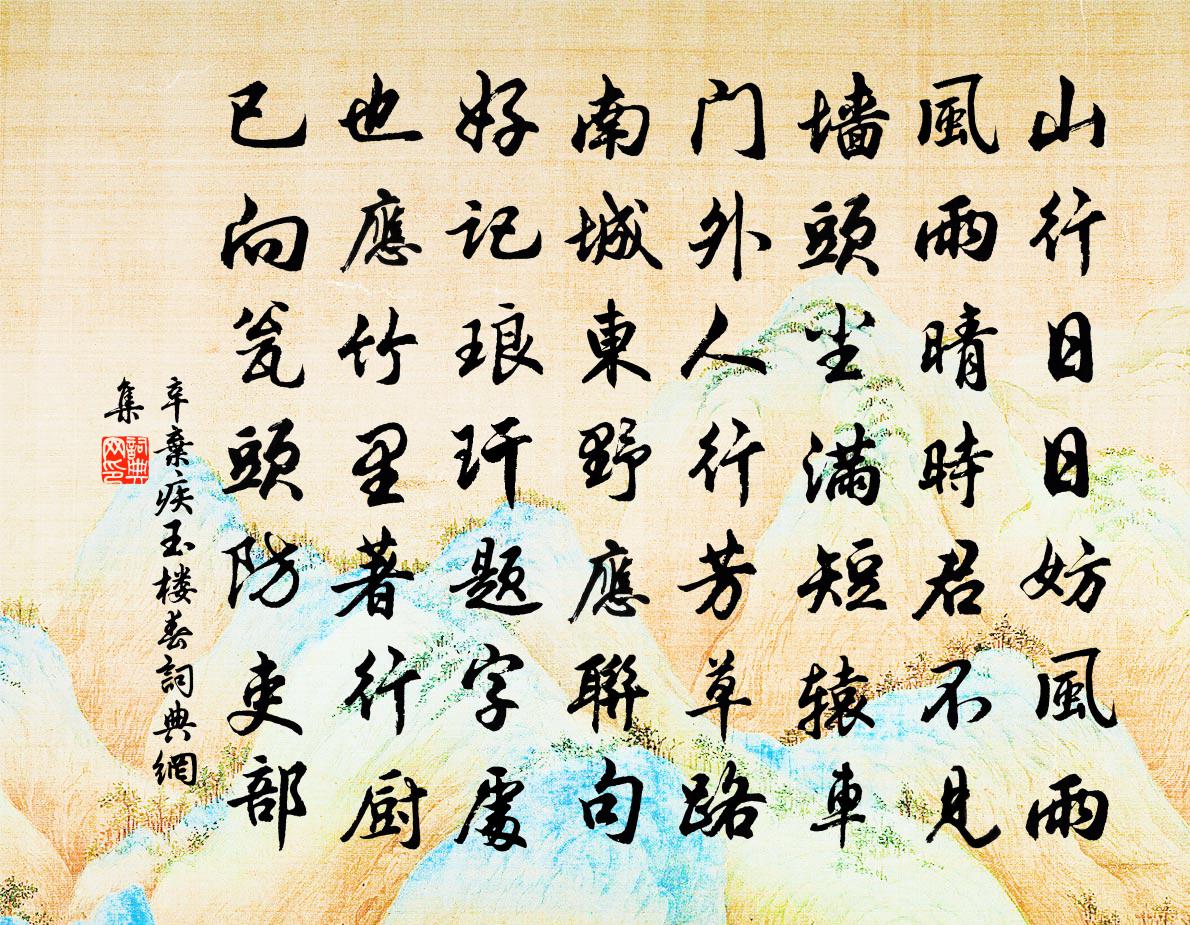 山行日日妨風雨
風雨晴時君不見
墙頭尘滿短辕車
门外人行芳草路
南城東野應聯句
好记琅玕题字處
也應竹里著行厨
已向瓮頭防吏部
辛棄疾玉楼春詞典網
集
詞典网印